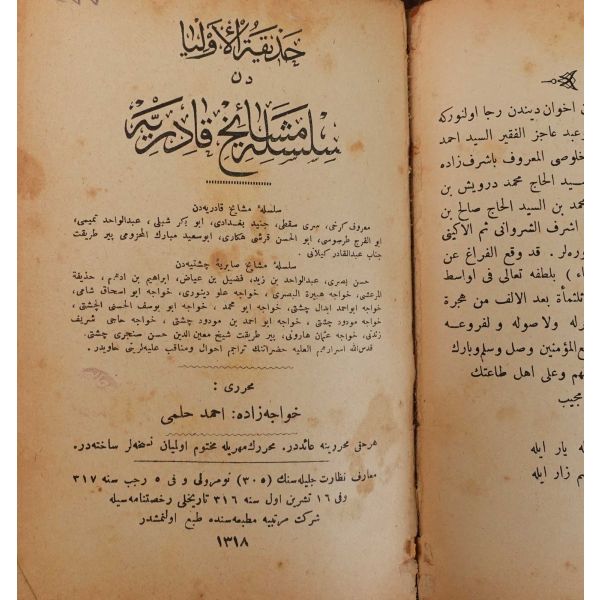 حديقة الأوليا
دن
سلسلهٔ مشايخ قادريه
سلسلهٔ مشايخ قادريه‌دن
معروف كرخی، سری سقطی، جنيد بغدادی، ابو بكر شبلی، عبدالواحد تميمی،
ابو الفرج طرسوسی، ابو الحسن قرشی هكاری، ابوسعيد مبارك المخزومی پير طريقت
جناب عبدالقادر كيلانی.
سلسلهٔ مشايخ صابريهٔ چشتيه‌دن
حسن بصری، عبدالواحد بن زيد، فضيل بن عياض، ابراهيم بن ادهم، حذيفة
المرعشی، خواجه هبيرة البصری، خواجه علو دينوری، خواجه ابو اسحاق شامی،
خواجه ابواحمد ابدال چشتی، خواجه ابو محمد، خواجه ابو يوسف الحسنی الچشتی،
خواجه مودود چشتی، خواجه ابو احمد بن مودود چشتی، خواجه حاجی شريف
زندنی، خواجه عثمان هارونی، پير طريقت شيخ معين الدين حسن سنجری چشتی.
قدس الله اسرارهم العليه حضراتنك تراجم احوال و مناقب عليه‌لرينی حاويدر.
محرری:
خواجه‌زاده: احمد حلمی
هر حقی محررينه عائددر. محررك مهريله مختوم اولميان نسخه‌لر ساخته‌در.
معارف نظارت جليله‌سنك (٣٠٥) نومرولی و فی ٥ رجب سنه ٣١٧
و فی ١٦ تشرين اول سنه ٣١٦ تاريخلی رخصتنامه‌سيله
شركت مرتبيه مطبعه‌سنده طبع اولنمشدر
١٣١٨
اخوان ديندن رجا اولنوركه
عبد عاجز الفقير السيد احمد
خلوصی المعروف باشرف‌زاده
سيد الحاج محمد درويش بن
محمد بن السيد الحاج صالح بن
اشرف الشروانی ثم الاكينی
. قد وقع الفراغ عن
) بلطفه تعالی فی اواسط
ثلثمأة بعد الالف من هجرة
وله ولاصوله و لفروعه
المؤمنين وصل وسلم وبارك
وعلى اهل طاعتك
مجيب
يار ايله
زار ايله